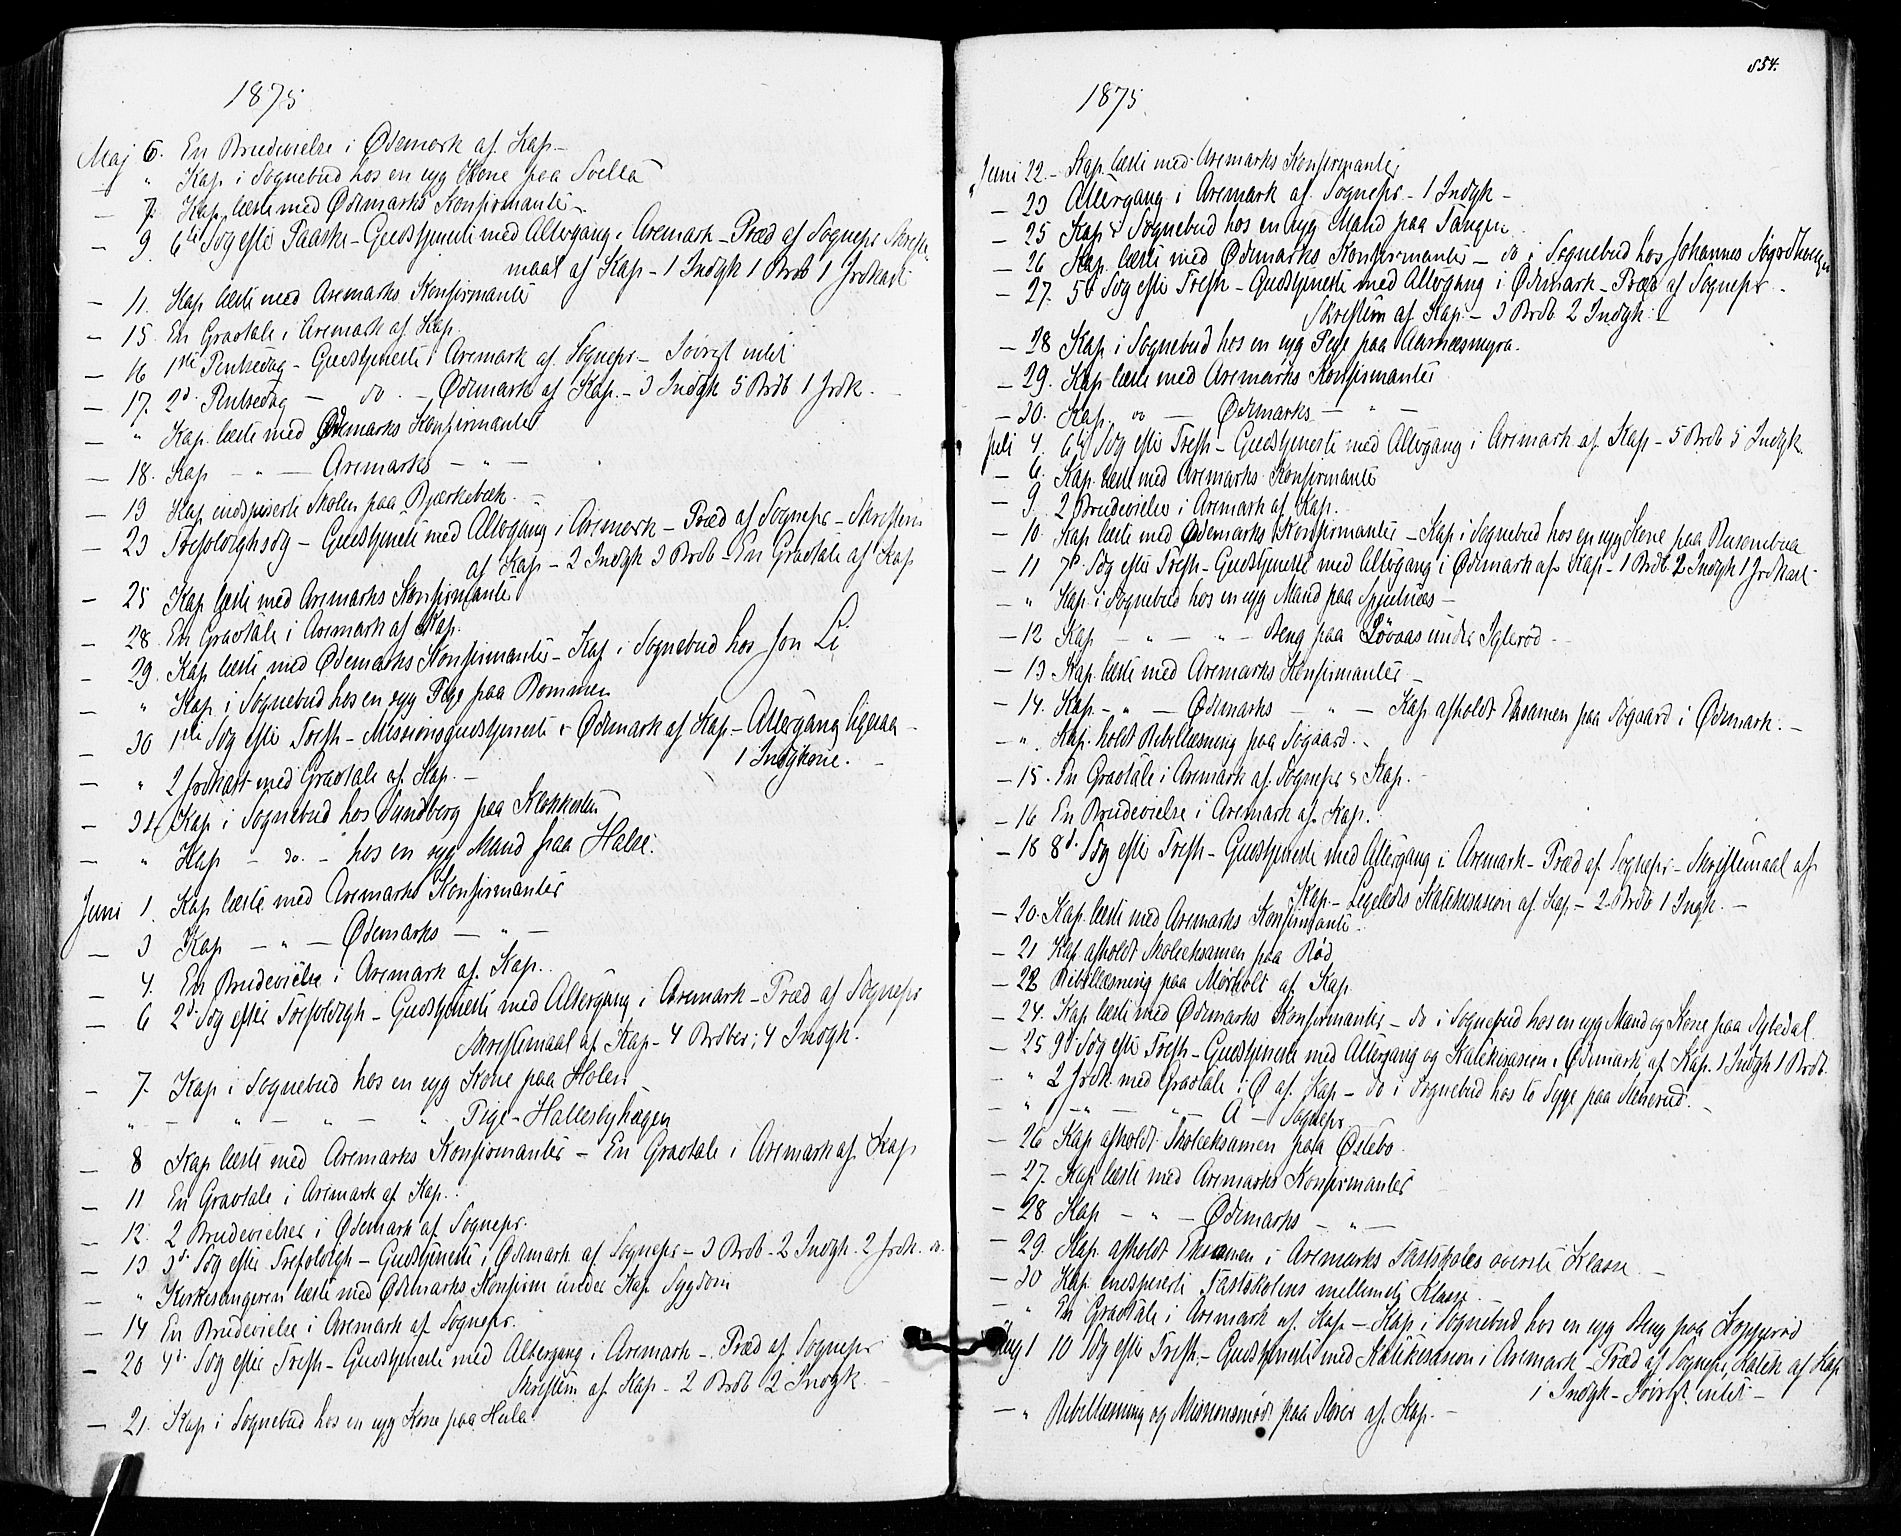 1875
Maj 6. En Brudevielse i Ødemark af Kap -
" Kap i Sognebud hos en syg Kone paa
- 7. Kap. læste med Ødemarks Konfirmanter -
- 9. 6te Søg efter Paaske - Gudstjeneste med Altergang i Aremark - Præd af Sognepr Skrifte-
maal af Kap - 1 Indgk 1 Brdb 1 Jrdkast
- 11. Kap læste med Aremarks Konfirmanter
- 15. En Gravtale i Aremark af Kap.
- 16 1ste Pintsedag - Gudstjeneste i Aremark af Sognepr - Iøvrigt intet
- 17. 2d. Pintsedag - do. - Ødemark af Kap. - 3 Indgk 5 Brdb 1 Jrdk. -
- " Kap. læste med Ødemarks Konfirmanter
- 18. Kap - " - Aremarks - " -
- 19 Kap indspiserte Skolen paa Bjærkebæk. -
- 23 Trefoldighsøg - Gudstjeneste med Altergang i Aremark - Præd af Sognepr - Skriftem
af Kap - 2 Indgk 3 Brdb - En Gravtale af Kap
- 25 Kap læste med Aremarks Konfirmanter
- 28. En Gravtale i Aremark af Kap.
- 29. Kap læste med Ødemarks Konfirmanter - Kap i Sognebud hos Jon Li
- " Kap i Sognebud hos en syg Pige paa Bommen
- 30 1ste Søg efter Trefh - Missionsgudstjeneste i Ødemark af Kap - Altergang ligesaa -
1 Indgkone. -
- " 2 Jrdkast med Gravtale af Kap. -
- 31 Kap i Sognebud hos Sundberg paa
- " Kap - do. - hos en syg Mand paa
Juni 1. Kap læste med Aremarks Konfirmanter
- 3 Kap - " - Ødemarks - " -
- 4. En Brudevielse i Aremark af Kap..
- 6 2d. Søg efter Trefoldigh - Gudstjeneste med Altergang i Aremark - Præd af Sognepr
Skriftemaal af Kap - 4 Brdber, 4 Indgk.
- 7. Kap i Sognebud hos en syg Kone paa Holen
" - " - " - " Pige - Hallesbyhagen
- 8 Kap læste med Aremarks Konfirmanter - En Gravtale i Aremark af Kap
- 11 En Gravtale i Aremark af Kap..
- 12. 2 Brudevielser i Ødemark af Sognepr.
- 13 3d. Søg efter Trefoldigh - Gudstjeneste i Ødemark af Sognepr - 3 Brdb - 2 Indgk. 2 Jrdk.
- " Kirkesangeren læste med Ødemarks Konfirm under Kap Sygdom
- 14 En Brudevielse i Aremark af Sognepr.
- 20 4d. Søg efter Trefh - Gudstjeneste med Altergang i Aremark - Præd af Sognepr
Skriftem af Kap - 2 Brdb 2 Indgk. -
- 21. Kap i Sognebud hos en syg Kone paa
854.
1875.
Juni 22 - Kap. læste med Aremarks Konfirmanter
- 23 Altergang i Aremark af Sognepr - 1 Indgk -
- 25 Kap i Sognebud hos en syg Mand paa Tangen
- 26 Kap. læste med Ødemarks Konfirmanter - do i Sognebud hos Johannes
- 27. 5d Søg efter Trefh - Gudstjeneste med Altergang i Ødemark - Præd af Sognepr -
Skriftem af Kap. - 3 Brdb. 2 Indgk. -
- 28 Kap i Sognebud hos en syg Pige paa Aarnæsmyra.
- 29. Kap læste med Aremarks Konfirmanter
- 30. Kap. do - Ødemarks - " -
Juli 4. 6te Søg efter Trefh - Gudstjeneste med Altergang i Aremark af Kap - 5 Brdb 5 Indgk
- 6. Kap. læste med Aremarks Konfirmanter
- 9. 2 Brudevielser i Aremark af Kap.
- 10. Kap læste med Ødemarks Konfirmanter - Kap i Sognebud hos en syg Kone paa
- 11 7d. Søg efter Trefh - Gudstjeneste med Altergang i Ødemark af Kap - 1 Brdb. 2 Indgk 1 Jrdkast -
- " Kap. i Sognebud hos en syg Mand paa
- 12 Kap - " - " - Dreng paa Løvaas under Iglerød -
- 13 Kap læste med Aremarks Konfirmanter -
- 14. Kap. - " - Ødemarks - " - Kap afholdt Eksamen paa Søgaard i Ødemark. -
- ". Kap. holdt Bibellæsning paa Søgaard. -
- 15. En Gravtale i Aremark af Sognepr & Kap. -
- 16 En Brudevielse i Aremark af Kap.
- 18 8d. Søg efter Trefh - Gudstjeneste med Altergang i Aremark - Præd af Sognepr - Skriftemaal af
Kap - Ligeledes Katekisasion af Kap - 2 Brdb 1 Ingk. -
- 20. Kap. læste med Aremarks Konfirmanter -
- 21 Kap afholdt Skoleeksamen paa Rød
- 22 Bibellæsning paa Mørholt af Kap
- 24. Kap læste med Ødemarks Konfirmanter - do i Sognebud hos en syg Mand og Kone paa Nybedal
- 25 9d Søg efter Trefh - Gudstjeneste med Altergang og Katekisasion i Ødemark af Kap. 1 Indgk 1 Brdb.
- " 2 Jrdk. med Gravtale i Ø af Kap - do i Sognebud hos to Syge paa
- " 1 - " - - " - A - Sognepr -
- 26 Kap afholdt Skoleeksamen paa Østebø.
- 27. Kap læste med Aremarks Konfirmanter
- 28 Kap - " - Ødemarks - " -
- 29. Kap. afholdt Eksamen i Aremarks Fastskoles øverste Klasse -
- 30 Kap. inspiserte Fastskolens mellemste Klasse -
- " En Gravtale i Aremark af Kap - Kap i Sognebud hos en syg Dreng paa
Aug 1 10 Søg efter Trefh. - Gudstjeneste med Katekisasion i Aremark - Præd af Sognepr, Katek af Kap
1 Indgk - Iøvrigt intet -
- " Bibellæsning og Missionsmøde paa af Kap. -